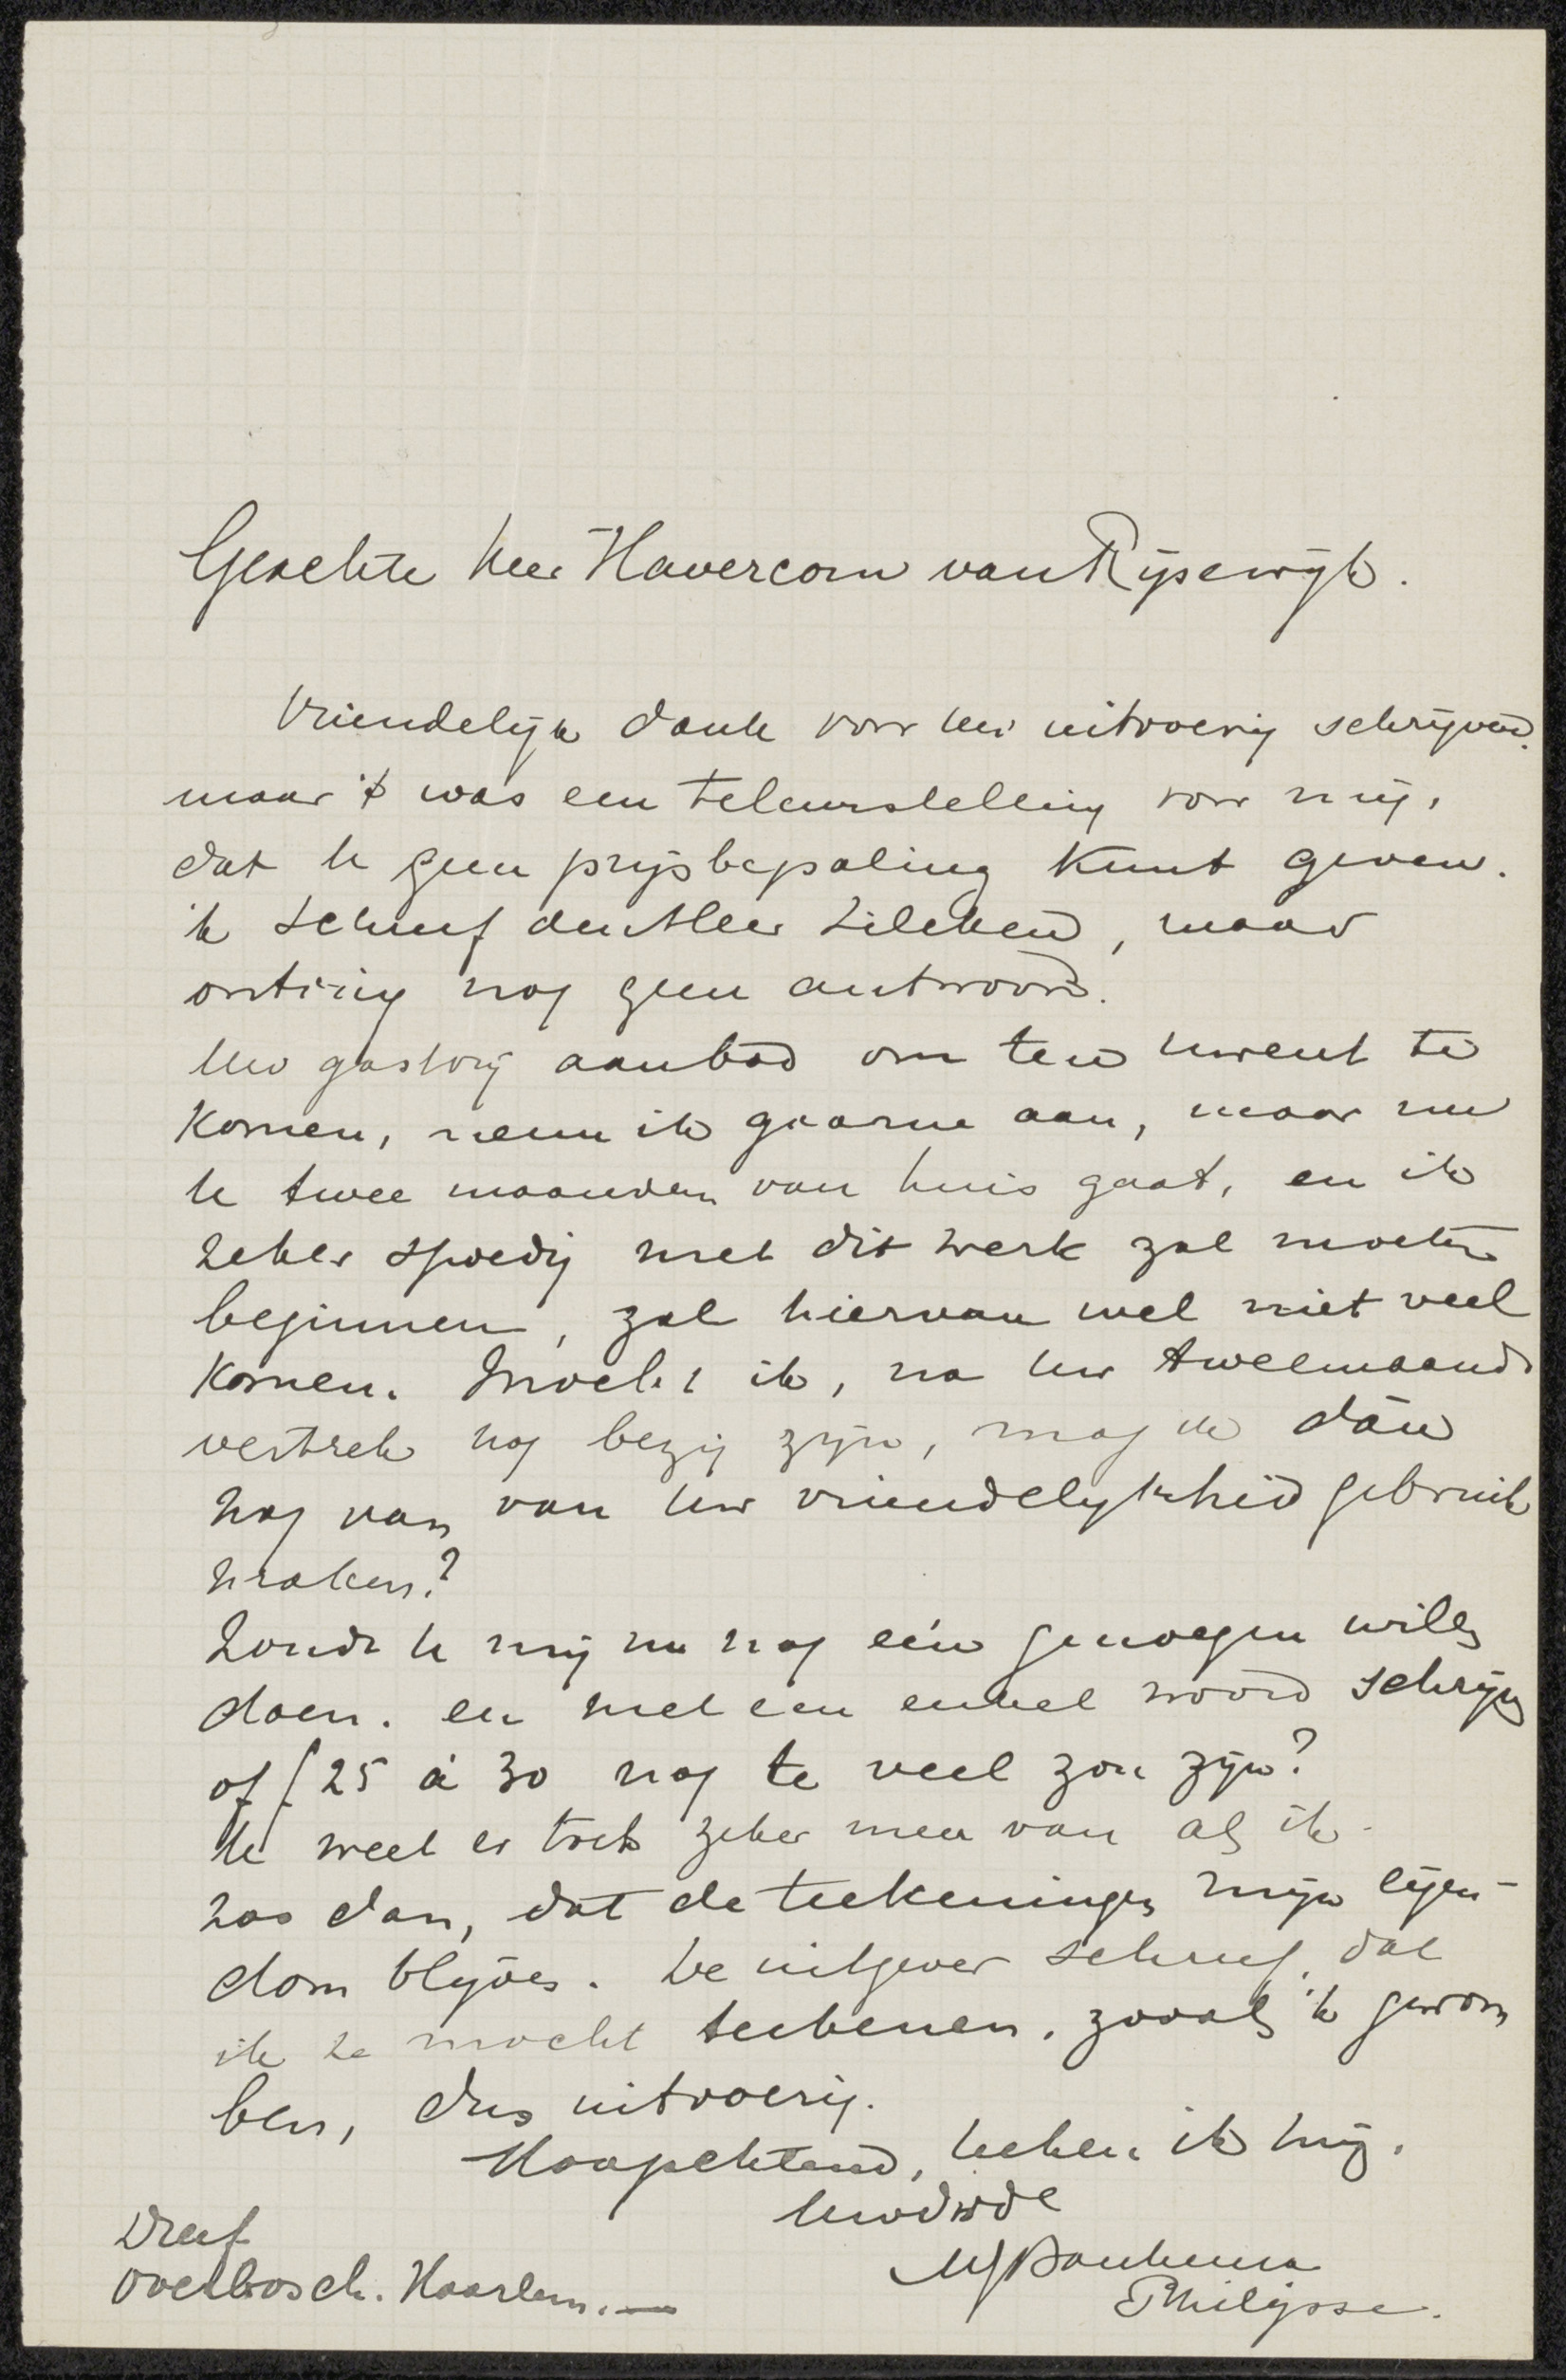 Geachte Heer Havercorn van Rijsewijk.
Vriendelijk dank voor uw uitvoerig schrijven.
maar 't was een teleurstelling voor mij,
dat U geen prijsbepaling kunt geven.
ik schreef den Heer Zilcken, maar
ontving nog geen antwoord.
Uw gastvrij aanbod om ten uwent te
komen, neem ik gaarne aan, maar nu
U twee maanden van huis gaat, en ik
zeker spoedig met dit werk zal moeten
beginnen, zal hiervan wel niet veel
komen. Mocht ik, na uw tweemaands
vertrek nog bezig zijn, mag ik dan
nog van van uw vriendelijkheid gebruik
maken?
Zoudt U mij nu nog één genoegen willen
doen. en met een enkel woord schrijven
of f 25 à 30 nog te veel zou zijn?
U weet er toch zeker meer van als ik
zoo dan, dat de teekeningen mijn eigen-
dom blijven. De uitgever schreef, dat
ik ze mocht teekenen, zooals ik gewoon
ben, dus uitvoerig.
Hoogachtend, teken ik mij,
Uwdwde
MJ Bauhuma
Philipsse.
Dreef
Overbosch. Haarlem.—